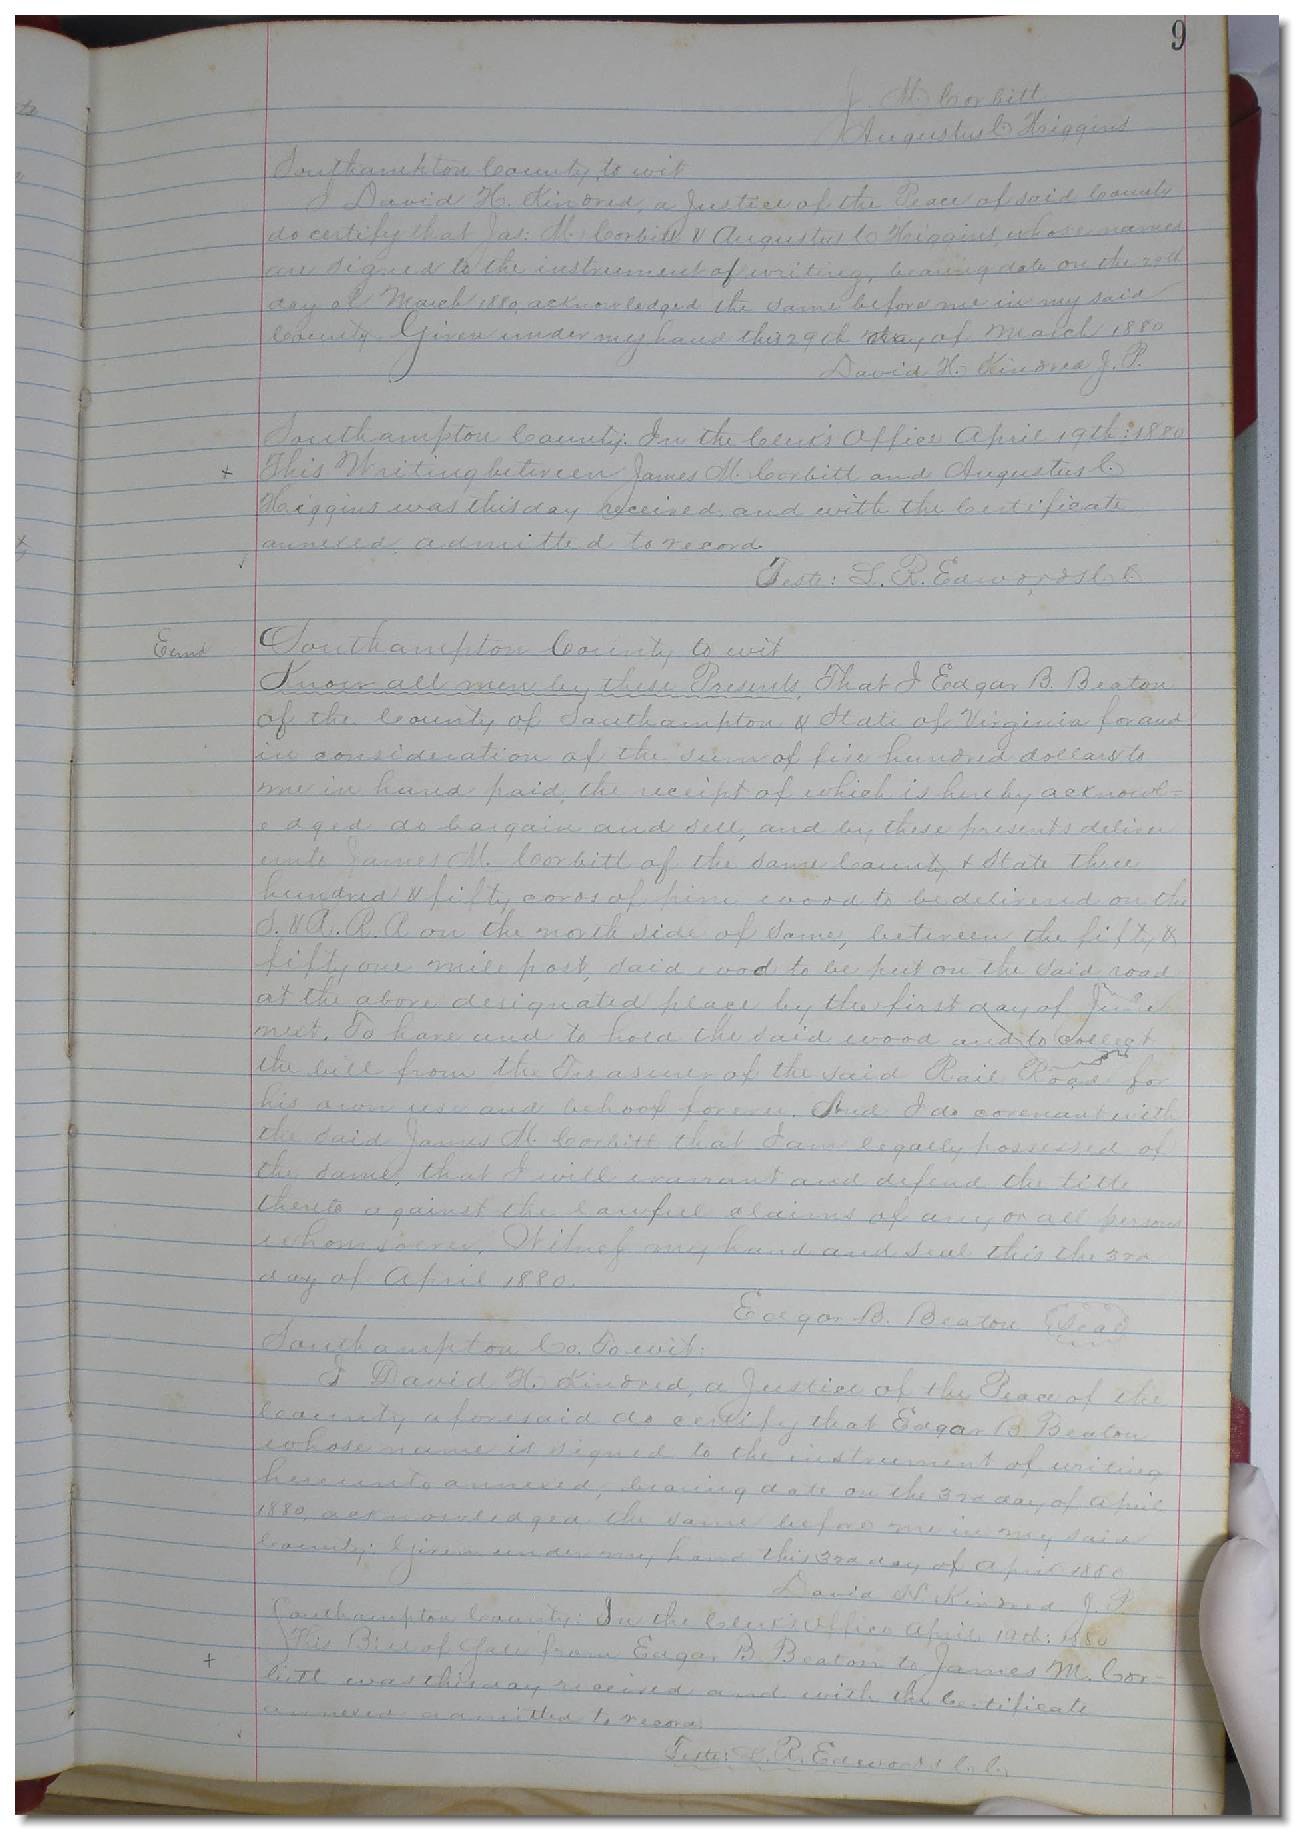 9
J. M. Corbitt
Augustus C. Higgins
Southampton County, to wit
I David H. Kindred, a Justice of the Peace of said County
do certify that Jas: M. Corbitt & Augustus C Higgins, whose names
are signed to the instrument of writing, bearing date on the 29th
day of March 1880, acknowledged the same before me in my said
County. Given under my hand this 29th day of March 1880
David H. Kindred J. P.
Southampton County: In the Clerk's Office April 19th: 1880
+ This Writing between James M. Corbitt and Augustus C.
Higgins was this day received, and with the Certificate
annexed, admitted to record.
Teste: L. R. Edwards C. C.
Exmd
Southampton County, to wit
Know all men by these Presents, That I Edgar B. Beaton
of the County of Southampton & State of Virginia for and
in consideration of the sum of five hundred dollars to
me in hand paid, the receipt of which is hereby acknowl=
edged do bargain and sell, and by these presents deliver
unto James M. Corbitt of the same County & State three
hundred & fifty cords of pine wood to be delivered on the
S. & R. R. R on the north side of same, between the fifty &
fifty one mile post, said wood to be put on the said road
at the above designated place by the first day of June
next. To have and to hold the said wood and to collect
the bill from the Treasurer of the said Rail Road for
his own use and behoof forever. And I do covenant with
the said James M. Corbitt that I am legally possessed of
the same, that I will warrant and defend the title
thereto against the lawful claims of any or all persons
whomsoever. Witness my hand and seal this the 3rd
day of April 1880.
Edgar B. Beaton Seal
Southampton Co. To wit:
I David H. Kindred, a Justice of the Peace of the
County aforesaid do certify that Edgar B Beaton
whose name is signed to the instrument of writing
hereunto annexed, bearing date on the 3rd day of April
1880, acknowledged the same before me in my said
County. Given under my hand this 3rd day of April 1880
David H Kindred J. P.
Southampton County: In the Clerk's Office April 19th: 1880
+ This Bill of Sale from Edgar B. Beaton to James M. Cor=
bitt was this day received and with the Certificate
annexed admitted to record.
Teste: L. R. Edwards C. C.